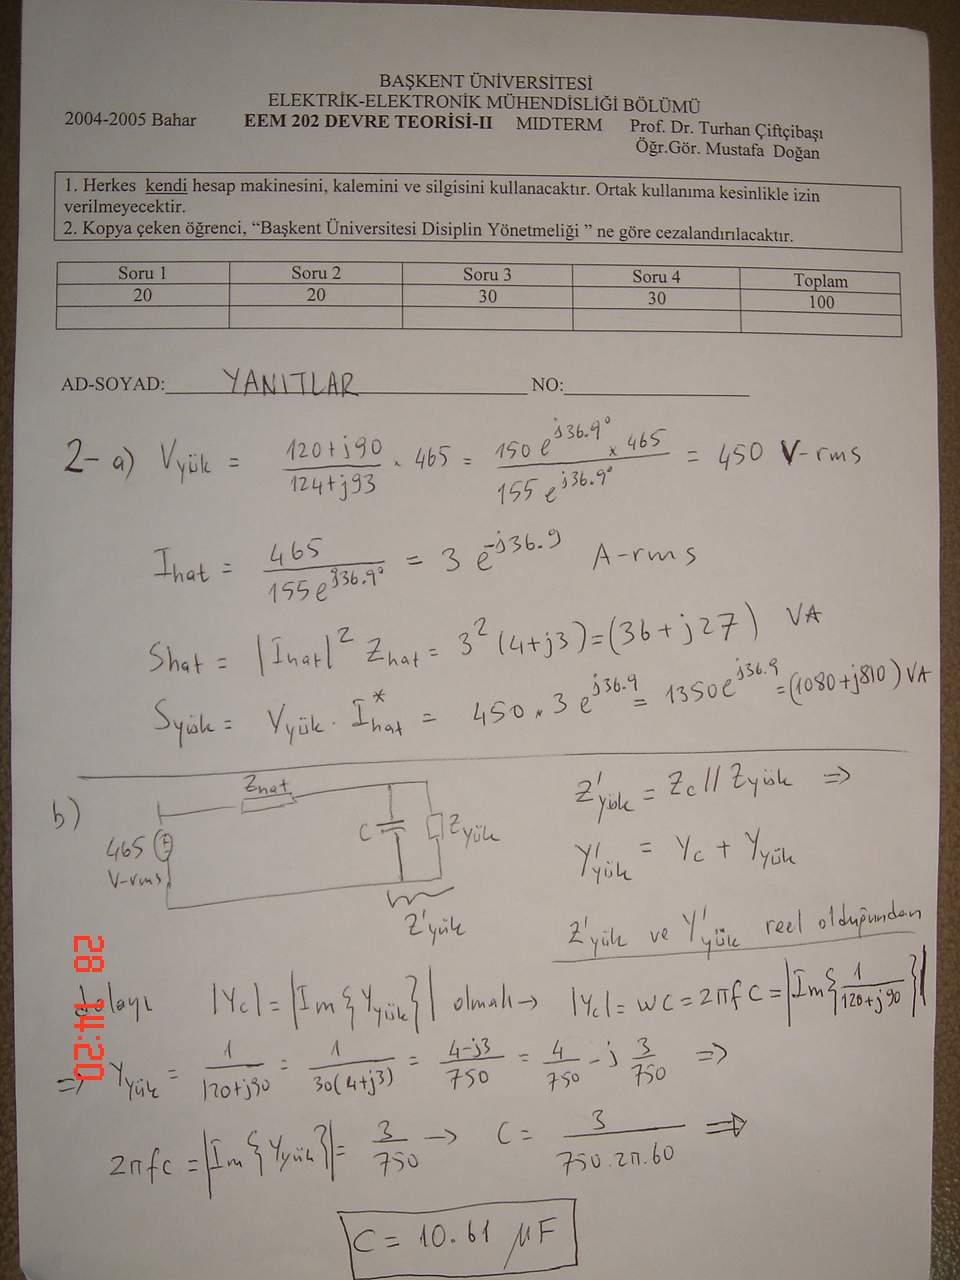 BAŞKENT ÜNİVERSİTESİ
ELEKTRİK-ELEKTRONİK MÜHENDİSLİĞİ BÖLÜMÜ
2004-2005 Bahar EEM 202 DEVRE TEORİSİ-II MIDTERM Prof. Dr. Turhan Çiftçibaşı
Öğr.Gör. Mustafa Doğan
1. Herkes kendi hesap makinesini, kalemini ve silgisini kullanacaktır. Ortak kullanıma kesinlikle izin
verilmeyecektir.
2. Kopya çeken öğrenci, “Başkent Üniversitesi Disiplin Yönetmeliği ” ne göre cezalandırılacaktır.
Soru 1 Soru 2 Soru 3 Soru 4 Toplam
20 20 30 30 100
AD-SOYAD: YANITLAR NO:
2- a) Vyük = (120+j90)/(124+j93) × 465 = (150 e^{j36.9°} × 465)/(155 e^{j36.9°}) = 450 V-rms
Ihat = 465/(155 e^{j36.9°}) = 3 e^{-j36.9} A-rms
Shat = |Ihat|² Zhat = 3² (4+j3) = (36+j27) VA
Syük = Vyük · I*hat = 450 × 3 e^{j36.9} = 1350 e^{j36.9} = (1080+j810) VA
b) Zhat
465 V-rms
C
Zyük
Z'yük
Z'yük = Zc // Zyük ⇒
Y'yük = Yc + Yyük
Z'yük ve Y'yük reel olduğundan
dolayı |Yc| = |Im{Yyük}| olmalı → |Yc| = wc = 2πfC = |Im{1/(120+j90)}|
⇒ Yyük = 1/(120+j90) = 1/(30(4+j3)) = (4-j3)/750 = 4/750 - j 3/750 ⇒
2πfc = |Im{Yyük}| = 3/750 → C = 3/(750.2π.60) ⇒
C = 10.61 μF
28 14:20